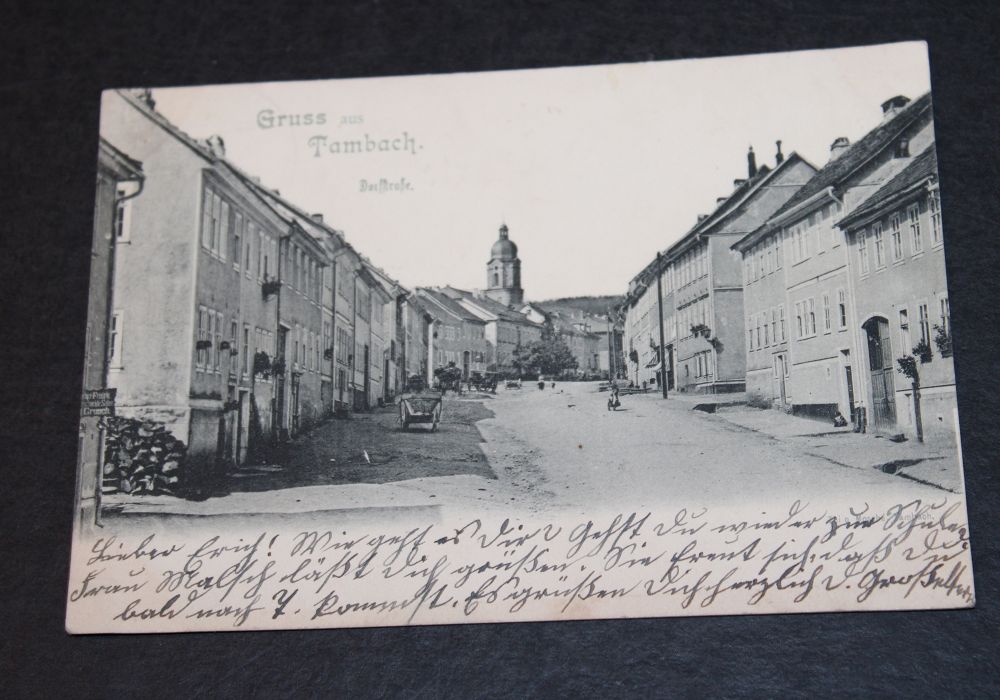 Gruss aus
Tambach.
Dorfstraße.
Grosch
Lieber Erich! Wie geht es Dir? Gehst Du wieder zur Schule?
Frau Malsch läßt Dich grüßen. Sie freut sich, daß Du
bald nach T. kommst. Es grüßen Dich herzlich d. Großeltern